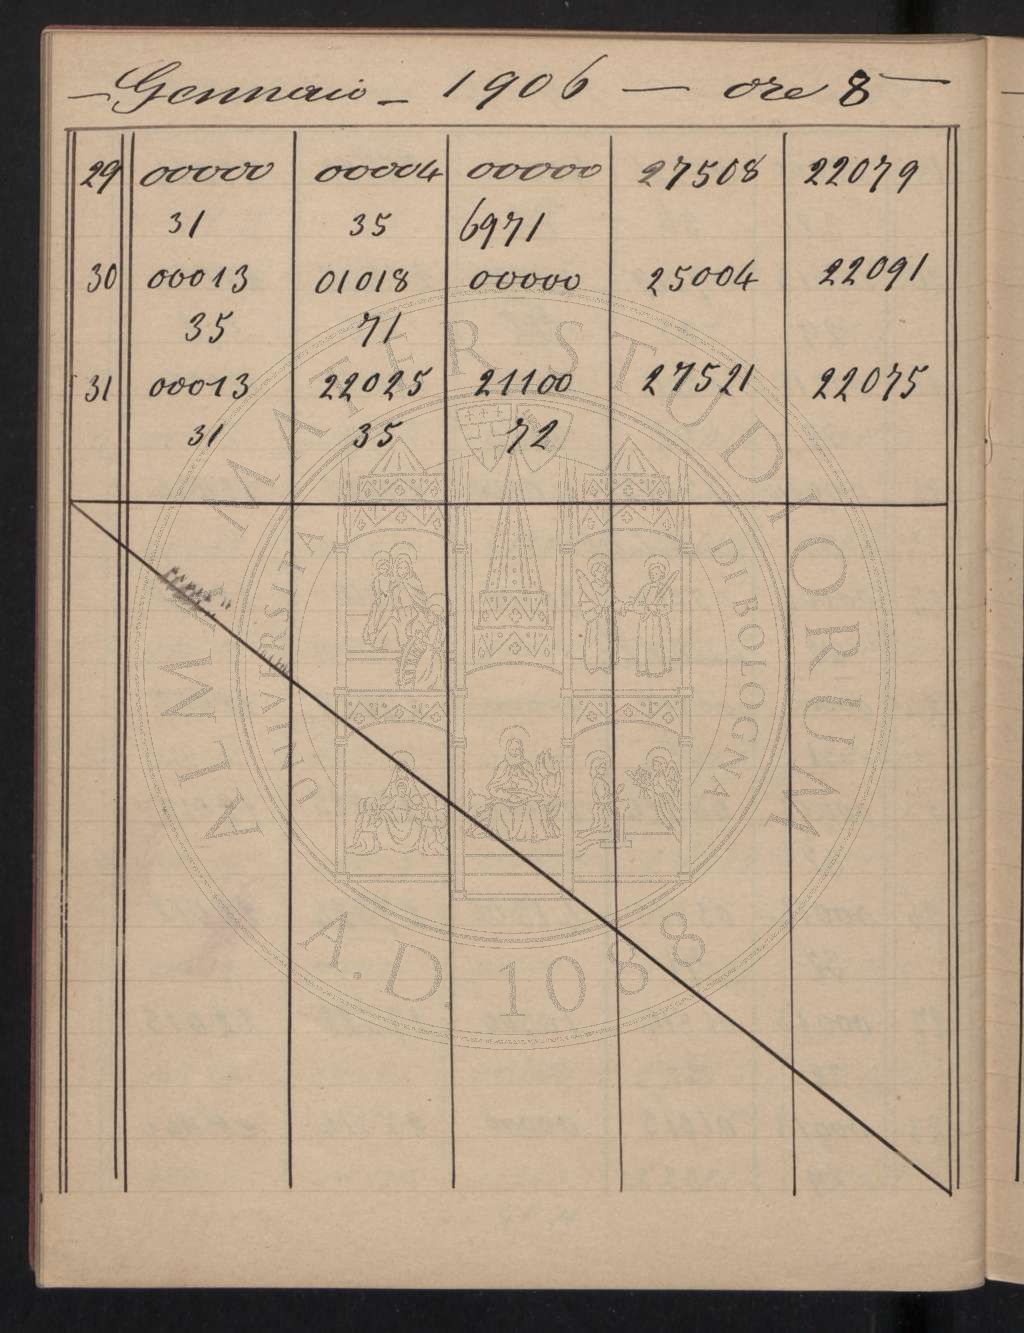 — Gennaio — 1906 — ore 8 —
29 00000 00004 00000 27508 22079
31 35 6971
30 00013 01018 00000 25004 22091
35 71
31 00013 22025 21100 27521 22075
31 35 72
ALMA MATER STUDIORUM
UNIVERSITA DI BOLOGNA
A.D. 1088